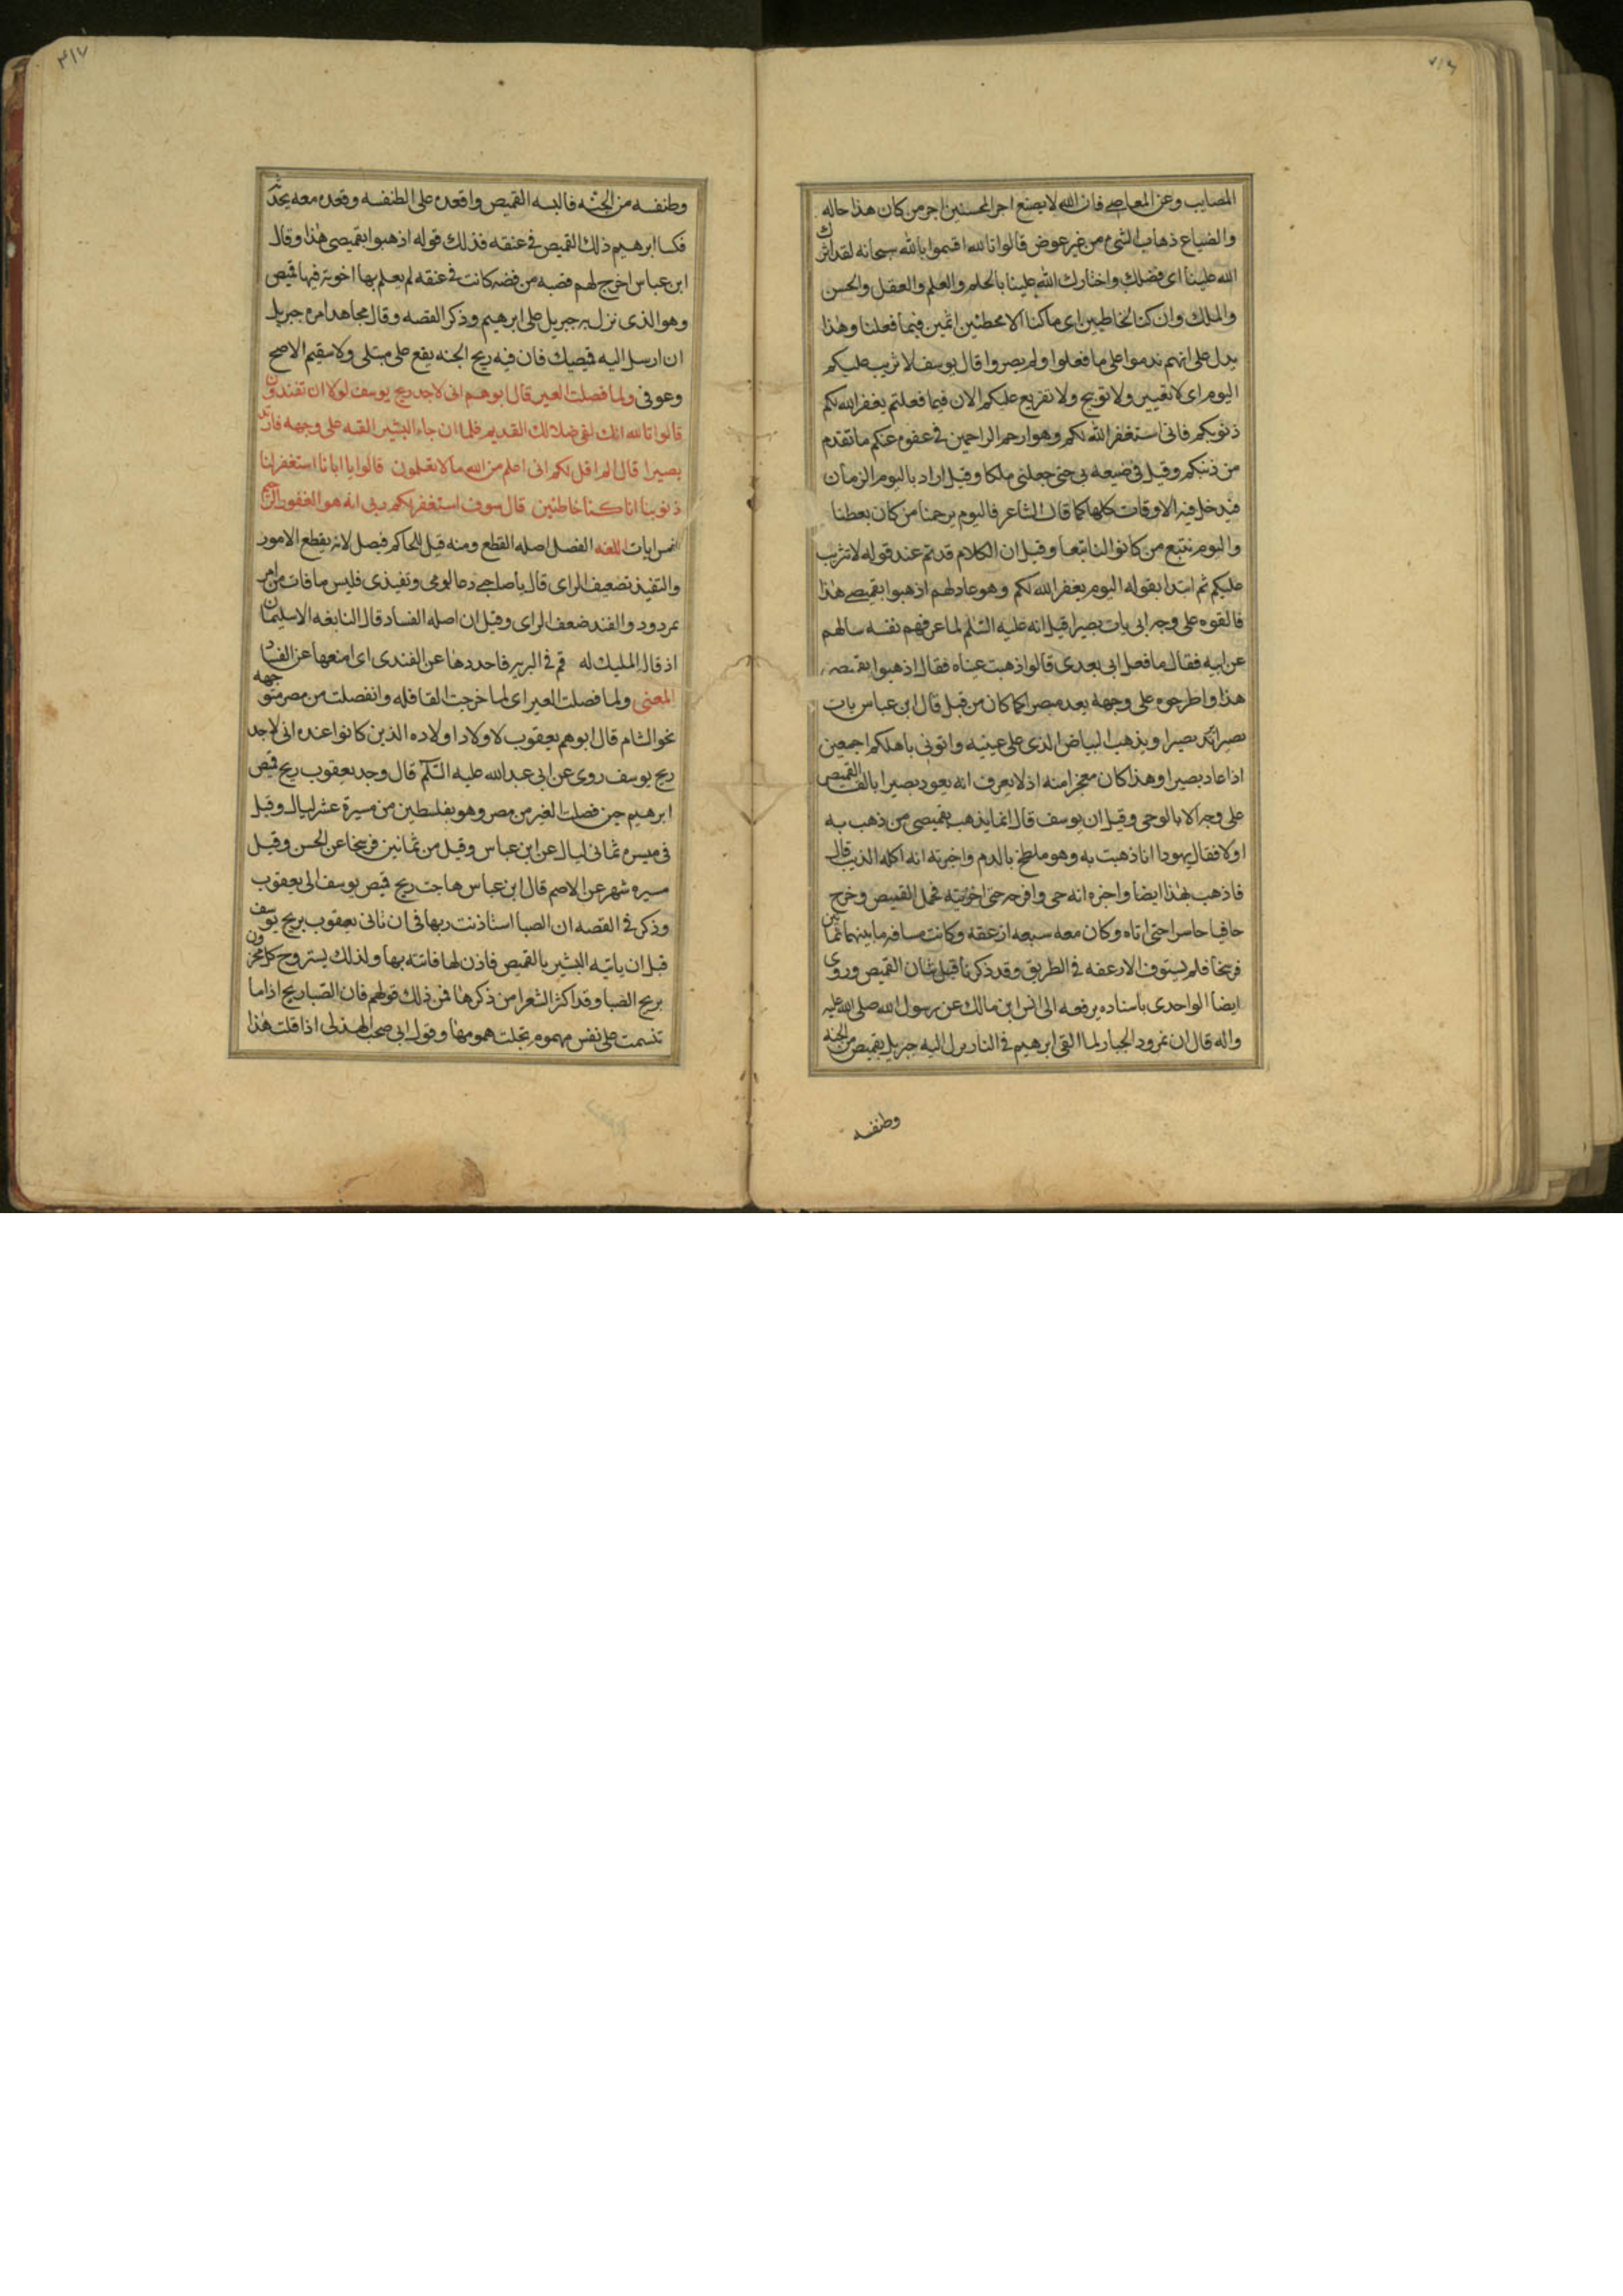 المصايب وعن المعاصي فان الله لا يضيع اجر المحسنين اجر من كان هذا حاله
والضياع ذهاب الشيء من غير عوض قالوا تالله اقسموا بالله سبحانه لقد اثرك
الله علينا اى فضلك واختارك الله علينا بالحلم والعلم والعقل والحسن
والملك وان كنا لخاطيين اى ما كنا الا مخطئين اثمين فيما فعلنا وهذا
يدل على انهم ندموا على ما فعلوا ولم يصروا قال يوسف لا تثريب عليكم
اليوم اى لا تعيير ولا توبيخ ولا تقريع عليكم الان فيما فعلتم يغفر الله لكم
ذنوبكم فانى استغفر الله لكم وهو ارحم الراحمين فى عفوه عنكم ما تقدم
من ذنبكم وقيل فى ضيعه بى حتى جعلنى ملكا وقيل اراد باليوم الزمان
فيدخل فيه الاوقات كلها كما قال الشاعر فاليوم يرحمنا من كان يغبطنا
واليوم نتبع من كانوا لنا تبعا وقيل ان الكلام قد تم عند قوله لا تثريب
عليكم ثم ابتدا بقوله اليوم يغفر الله لكم وهو عاد لهم اذهبوا بقميصي هذا
فالقوه على وجه ابى يات بصيرا قيل انه عليه السلم لما عرفهم نفسه سالهم
عن ابيه فقال ما فعل ابى بعدى قالوا ذهبت عيناه فقال اذهبوا بقميصى
هذا واطرحوه على وجهه يعد مبصرا كما كان من قبل قال ابن عباس يات
بصيرا يعد بصيرا ويذهب البياض الذى على عينيه واتونى باهلكم اجمعين
اذا عاد بصيرا وهذا كان معجزا منه اذ لا يعرف انه يعود بصيرا بالقا القميص
على وجه الا بالوحى وقيل ان يوسف قال انما يذهب بقميصى من ذهب به
اولا فقال يهودا انا ذهبت به وهو ملطخ بالدم واخبرته انه اكله الذيب قال
فاذهب بهذا ايضا واخبره انه حى وافرحه حتى احزنته فحمل القميص وخرج
حافيا حاسرا حتى اتاه وكان معه سبعه ارغفة وكانت مسافه ما بينهما ثمانين
فرسخا فلم يستوف الارغفه فى الطريق وقد ذكرنا قبل شان القميص وروى
ايضا الواحدى باسناده يرفعه الى انس ابن مالك عن رسول الله صلى الله عليه
واله قال ان نمرود الجبار لما القى ابرهيم فى النار نزل اليه جبريل بقميص من الجنه
وطنفسه
وطنفسه من الجنه فالبسه القميص واقعده على الطنفسه وقعد معه يحدثه
فكسا ابرهيم ذلك القميص فى عنقه فذلك قوله اذهبوا بقميصى هذا وقال
ابن عباس اخرج لهم قصبه من فضه كانت فى عنقه لم يعلم بها اخوته فيها قميص
وهو الذى نزل به جبريل على ابرهيم وذكر القصه وقال مجاهد امره جبريل
ان ارسل اليه قميصك فان فيه ريح الجنه يقع على مبتلى ولا سقيم الا صح
وعوفى ولما فصلت العير قال ابوهم انى لاجد ريح يوسف لولا ان تفندون
قالوا تالله انك لفى ضلالك القديم فلما ان جاء البشير القيه على وجهه فارتد
بصيرا قال الم اقل لكم انى اعلم من الله ما لا تعلمون قالوا يا ابانا استغفر لنا
ذنوبنا انا كنا خاطئين قال سوف استغفر لكم ربى انه هو الغفور الرحيم
خمس ايات اللغه الفصل اصله القطع ومنه قيل للحاكم فيصل لانه يقطع الامور
والتفنيد تضعيف الراى قال يا صاحبى دعا لومى وتفنيدى فليس ما فات من امر
بمردود والفند ضعف الراى وقيل ان اصله الفساد قال النابغه الا سليمان
اذ قال المليك له قم فى البريه فاحددها عن الفند اى امنعها عن الفساد
المعنى ولما فصلت العير اى لما خرجت القافله وانفصلت من مصر متوجهه
نحو الشام قال ابوهم يعقوب لاولاد اولاده الذين كانوا عنده انى لاجد
ريح يوسف روى عن ابى عبد الله عليه السلم قال وجد يعقوب ريح قميص
ابرهيم حين فصلت العير من مصر وهو بفلسطين من مسيرة عشر ليال وقيل
فى مسيره ثمانى ليال عن ابن عباس وقيل من ثمانين فرسخا عن الحسن وقيل
مسيره شهر عن الاصم قال ابن عباس هاجت ريح قميص يوسف الى يعقوب
وذكر فى القصه ان الصبا استاذنت ربها فى ان تاتى يعقوب بريح يوسف
قبل ان ياتيه البشير بالقميص فاذن لها فاتته بها ولذلك يستروح كل محزون
بريح الصبا وقد اكثر الشعرا من ذكرها فمن ذلك قولهم فان الصبا ريح اذا ما
تنسمت على نفس مهموم تجلت همومها وقول ابى صخر الهذلى اذا قلت هذا